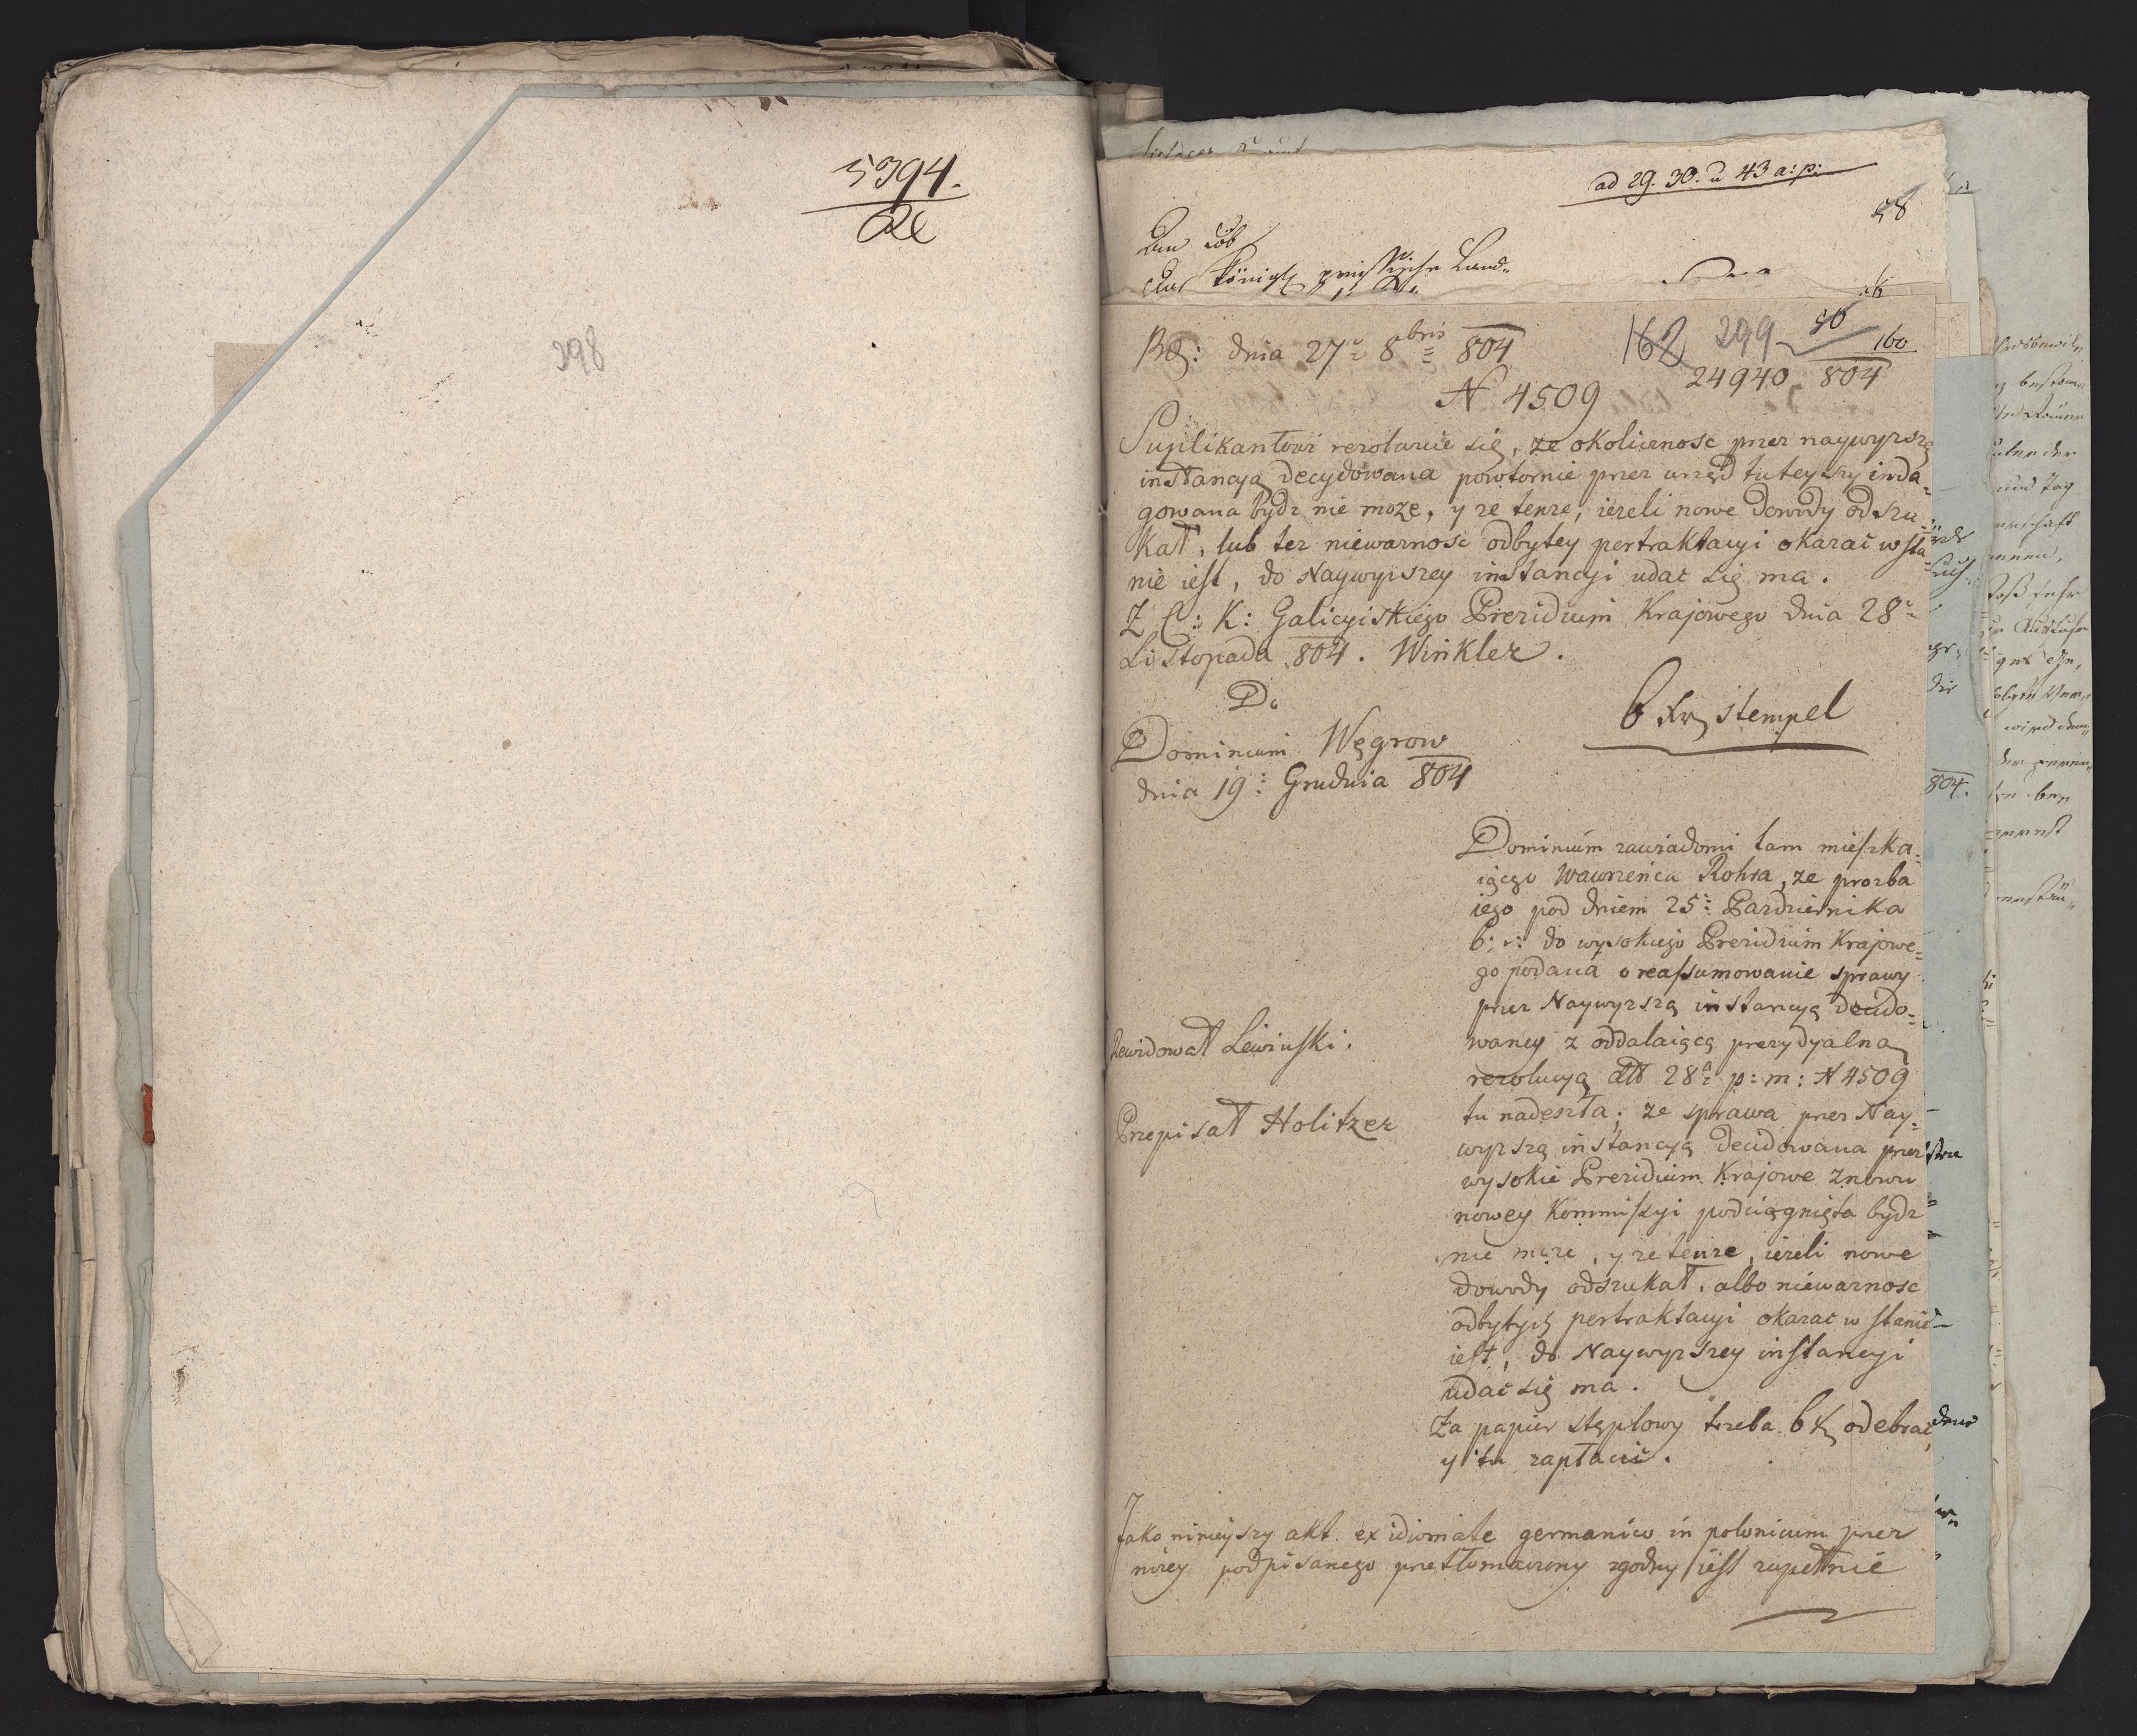 5394.
298
ad 29. 30. u 43 a: p:
58
An das
Königl preußische Land-
dnia 27 8bris 804
162 299 50 160
24940 804
N 4509
Suplikantowi rezolwuie się, ze okolicznosc przez naywyzszą
instancyą decydowana powtornie przez urząd tuteyszy inda=
gowana bydz nie moze, y ze tenze, iezeli nowe dowody odszu
kał, lub tez niewaznosc odbytey pertraktacyi okazać w sta
nie iest, do Naywyzszey instancyi udac się ma.
Z C: K: Galicyiskiego Prezidium Krajowego dnia 28
Listopada 804. Winkler.
Do
Dominium Węgrow
6 Xr stempel
dnia 19: Grudnia 804
Dominium zawiadomi tam mieszka=
iącego Wawrzeńca Rohra, ze prozba
iego pod dniem 25: Pazdziernika
b: r: do wysokiego Prezidium Krajowe=
go podana o reassumowanie sprawy
przez Naywyzszą instancyą decido=
waney z oddalaiącą prezydyalną
rezolucyą dtt 28 p: m: N 4509
tu nadeszła; ze sprawa przez Nay=
wyzszą instancyą decidowana przez
wysokie Prezidium Krajowe znowu
nowey Kommissyi podciągnięta bydz
nie moze, y ze tenze, iezeli nowe
dowody odszukał, albo niewaznosc
odbytych pertraktacyi okazac w stanie
iest, do Naywyzszey instancyi
udać się ma.
Za papier stęplowy trzeba 6 X odebrać
y tu zapłacić.
Rewidował Lewinski.
Przepisał Holitzer
Jako ninieyszy akt ex idiomate germanico in polonicum przez
nizey podpisanego przetłomaczony zgodny iest zupełnie
804.